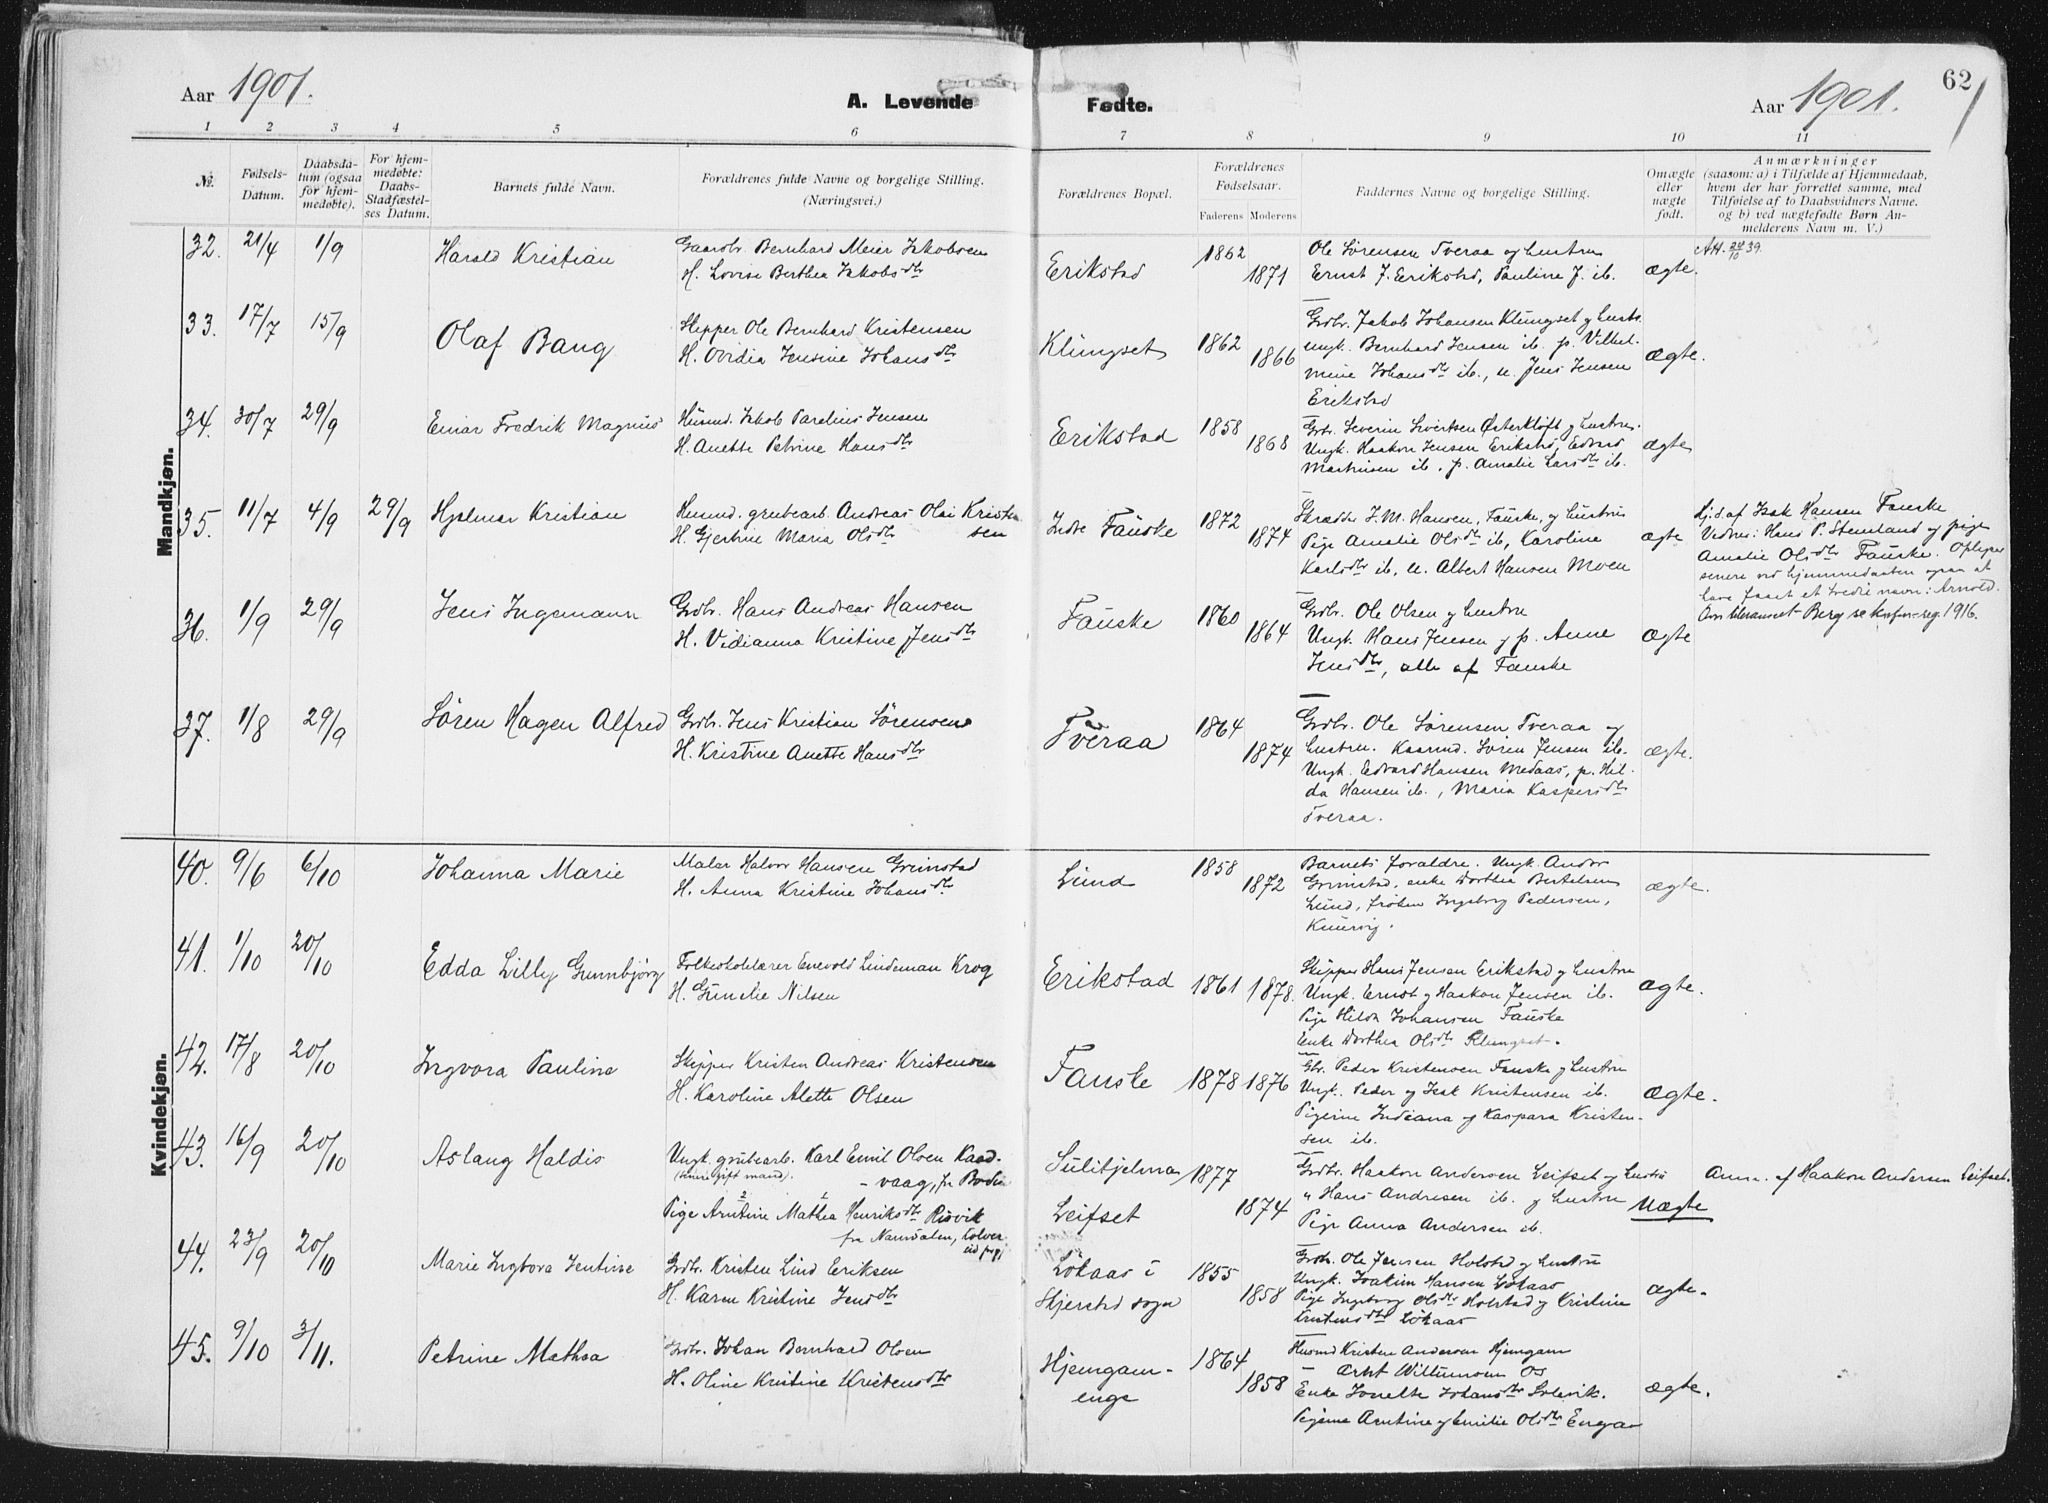 Aar 1901.
A. Levende
Fødte.
Aar 1901.
62
1 2 3 4 5 6 7 8 9 10 11
№.
Fødsels-
Datum.
Daabsda-
tum (ogsaa
for hjem-
medøbte).
For hjem-
medøbte:
Daabs-
Stadfæstel-
ses Datum.
Barnets fulde Navn.
Forældrenes fulde Navne og borgelige Stilling.
(Næringsvei.)
Forældrenes Bopæl.
Forældrenes
Fødselsaar.
Faderens Moderens
Faddernes Navne og borgelige Stilling.
Omægte
eller
uægte
født.
Anmærkninger
(saasom: a) i Tilfælde af Hjemmedaab,
hvem der har forrettet samme, med
Tilføielse af to Daabsvidners Navne.
og b) ved uægtefødte Børn An-
melderens Navn m. V.)
Mandkjøn.
32. 21/4 1/9 Harald Kristian
Gaardbr. Bernhard Meier Jakobsen
H. Lovise Berthea Jakobsdtr
Erikstad 1862 1871
Ole Sørensen Tveraa og hustru
Ernst J. Erikstad, Pauline J. ib.
ægte.
Att. 20/10 39.
33. 17/7 15/9 Olaf Bang
Skipper Ole Bernhard Kristensen
H. Ovidia Jensine Johansdtr
Klungset 1862 1866
Grdbr. Jakob Johansen Klungset og hustr.
ungk. Bernhard Jensen ib. p. Vilhel-
mine Johansdtr ib., u. Jens Jensen
Erikstad
ægte.
34. 30/7 29/9 Einar Fredrik Magnus
Husmd. Jakob Parelius Jensen
H. Anette Petrine Hansdtr
Erikstad 1858 1868
Grbr. Severin Sivertsen Østerkløft og hustru.
Ungk. Haakon Jensen Erikstad, Edvard
Martinsen ib., p. Amalie Larsdtr ib.
ægte
35. 11/7 4/9 29/9 Hjalmar Kristian
Husmd. grubearb. Andreas Olai Kristen
sen
H. Gjertine Maria Olsdtr
Indre Fauske 1872 1874
Skrædder J. M. Hansen, Fauske, og hustru
Pige Amalie Olsdtr ib, Karoline
Karlsdtr ib, u. Albert Hansen Moen
ægte
Hj.d. af Isak Hansen Fauske
Vidner: Hans P. Stemland og pige
Amalie Olsdtr Fauske. Oplyses
senere ved hjemmedaaben ogsaa at
have faaet et tredie navn: Arnold.
36. 1/9 29/9 Jens Ingemann
Grdbr. Hans Andreas Hansen
H. Vidianna Kristine Jensdtr
Fauske 1860 1864
Grdbr. Ole Olsen og hustru
Ungk. Hans Jensen og p. Anne
Jensdtr, alle af Fauske
ægte
Om tilnavnet Berg se konfm.reg. 1916.
37. 1/8 29/9 Søren Hagen Alfred
Grdbr. Jens Kristian Sørensen
H. Kristine Anette Hansdtr
Tveraa 1864 1874
Grdbr. Ole Sørensen Tveraa og
hustru. Kaarmd. Søren Jensen ib.
Ungk. Edvard Hansen Medaas, p. Hil-
da Hansen ib., Maria Kaspersdtr
Tveraa.
ægte.
Kvindekjøn.
40. 9/6 6/10 Johanna Marie
Maler Halvor Hansen Grimstad
H. Anna Kristine Johansdtr.
Lund 1858 1872
Barnets forældre. Ungk. Andor
Grimstad, enke Dorthea Bertelsen
Lund, frøken Ingeborg Pedersen,
ægte.
41. 1/10 20/10 Edda Lilly Gunnbjørg
Folkeskolelærer Enevold Lindeman Krog
H. Gunelie Nilsen
Erikstad 1861 1878.
Skipper Hans Jensen Erikstad og hustru
Ungk. Ernst og Haakon Jensen ib.
Pige Hilda Johansen Fauske
Enke Dorthea Olsdtr Klungset.
ægte.
42. 17/8 20/10 Ingvora Pauline
Skipper Kristen Andreas Kristensen
H. Karoline Alette Olsen
Fauske 1878 1876
Gbr. Peder Kristensen Fauske og hustru
Ungk. Peder og Isak Kristensen ib.
Pigerne Indiana og Kaspara Kristen-
sen ib.
ægte.
43. 16/9 20/10 Aslaug Haldis
Ungk. grubearb. Karl Emil Olsen Kaad-
(senere gift mand). - vaag, fr Bodin
Pige Arntine Mathea Henriksdtr Risvik
fra Namdalen, Kolver
eid prgj
Sulitjelma 1877
Leifset 1874
Grdbr. Haakon Andersen Leifset og hustru
" Hans Andresen ib. og hustru
Pige Anna Andersen ib.
Uægte
Anm. af Haakon Andersen Leifset.
44. 23/9 20/10 Marie Ingbora Jentine
Grdbr. Kristen Lind Eriksen
H. Karen Kristine Jensdtr
Løkaas i
Skjerstad sogn 1855 1858
Grdbr. Ole Jensen Holstad og hustru
Ungk. Joakim Hansen Løkaas
Pige Ingeborg Olsdtr Holstad og Kristine
Kristensdtr Løkaas
ægte.
45. 9/10 3/11. Petrine Mathea
Grdbr. Johan Bernhard Olsen
H. Oline Kristine Kristensdtr
Hjemgam-
enge 1864 1858
Husmd Kristen Andersen Hjemgam
- Arnt Wiltunsen Os
Enke Jonette Johansdtr Solsvik.
Pigerne Arntine og Emilie Olsdtr Enga
ægte.